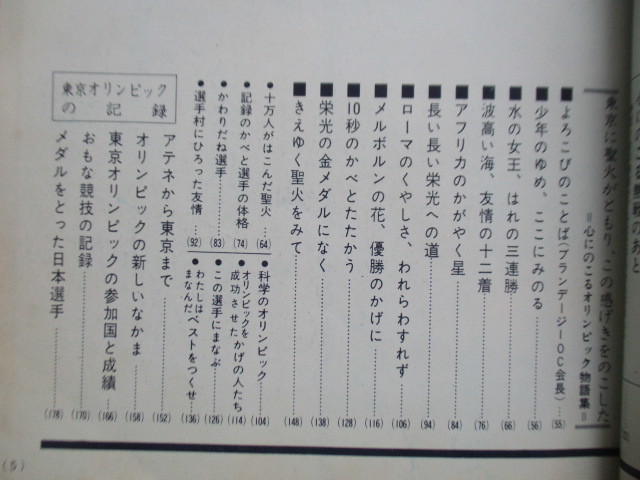 東京に聖火がともり、この感げきをのこした
=心にのこるオリンピック物語集=
■よろこびのことば(ブランデージIOC会長)……(55)
■少年のゆめ、ここにみのる……(56)
■水の女王、はれの三連勝……(66)
■波高い海、友情の十二着……(76)
■アフリカのかがやく星……(84)
■長い長い栄光への道……(94)
■ローマのくやしさ、われらわすれず……(106)
■メルボルンの花、優勝のかげに……(116)
■10秒のかべとたたかう……(128)
■栄光の金メダルになく……(138)
■きえゆく聖火をみて……(148)
●十万人がはこんだ聖火……(64)
●記録のかべと選手の体格……(74)
●かわりだね選手……(83)
●選手村にひろった友情……(92)
●科学のオリンピック……(104)
●オリンピックを成功させたかげの人たち……(114)
●この選手にまなぶ……(126)
●わたしはベストをつくせ
まなんだ……(136)
東京オリンピック
の記録
アテネから東京まで……(152)
オリンピックの新しいなかま……(158)
東京オリンピックの参加国と成績……(166)
おもな競技の記録……(170)
メダルをとった日本選手……(178)
(5)